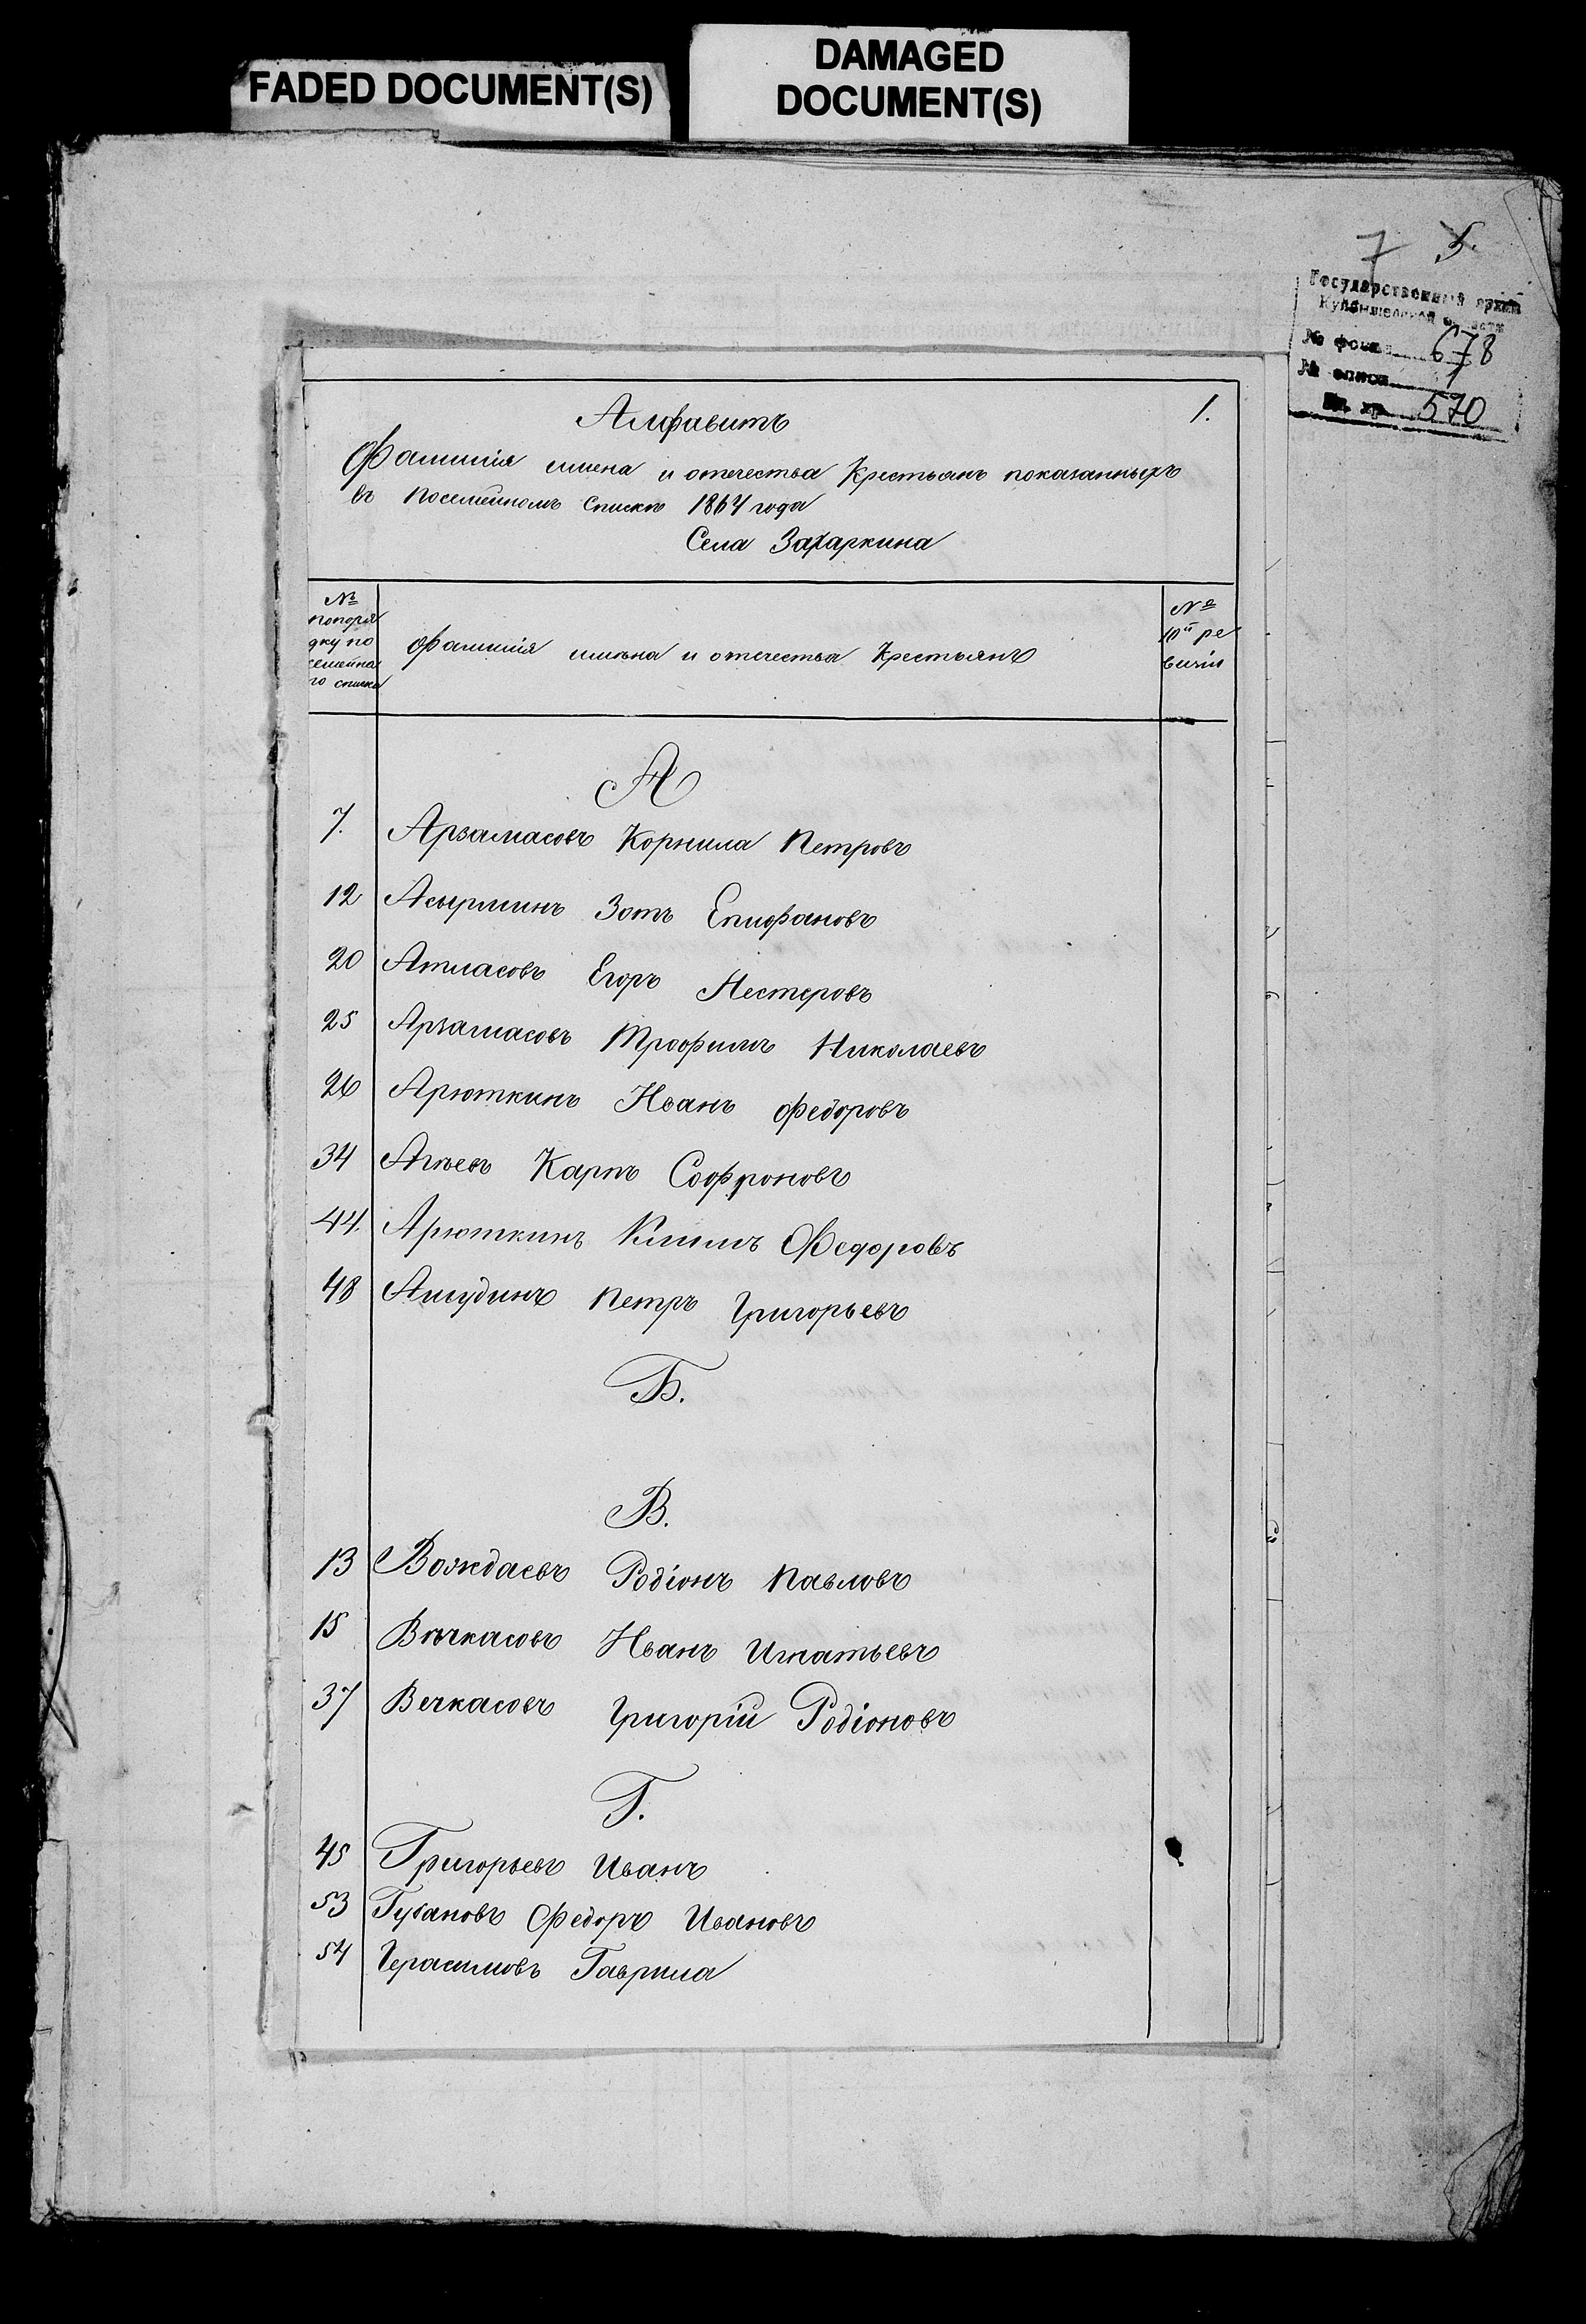 FADED DOCUMENT(S)
DAMAGED
DOCUMENT(S)
7 5.
Государственный архив
Куйбышевской области
№ фонда 678
№ описи 1
Ед. хр. 570
1.
Алфавитъ
Фамилія имена и отечества Крестьянъ показанныхъ
въ посемейномъ списке 1864 года
Села Захаркина
№
попоря
дку по
семейна
го списка
Фамилія имѣна и отечества Крестьянъ
№
10й ре
визіи
А
7. Арзамасовъ Корнила Петровъ
12 Асырминъ Зотъ Епифановъ
20 Атласовъ Егоръ Нестеровъ
25 Арзамасовъ Трофимъ Николаевъ
26 Арюткинъ Иванъ Федоровъ
34 Агѣевъ Карпъ Софроновъ
44. Арюткинъ Климъ Федоровъ
48 Петръ Григорьевъ
Б.
В.
13 Вождаевъ Родіонъ Павловъ
15 Вѣчкасовъ Иванъ Игнатьевъ
37 Вечкасовъ Григорій Родіоновъ
Г.
45 Григорьевъ Иванъ
53 Губановъ Федоръ Ивановъ
54 Герасимовъ Гаврила